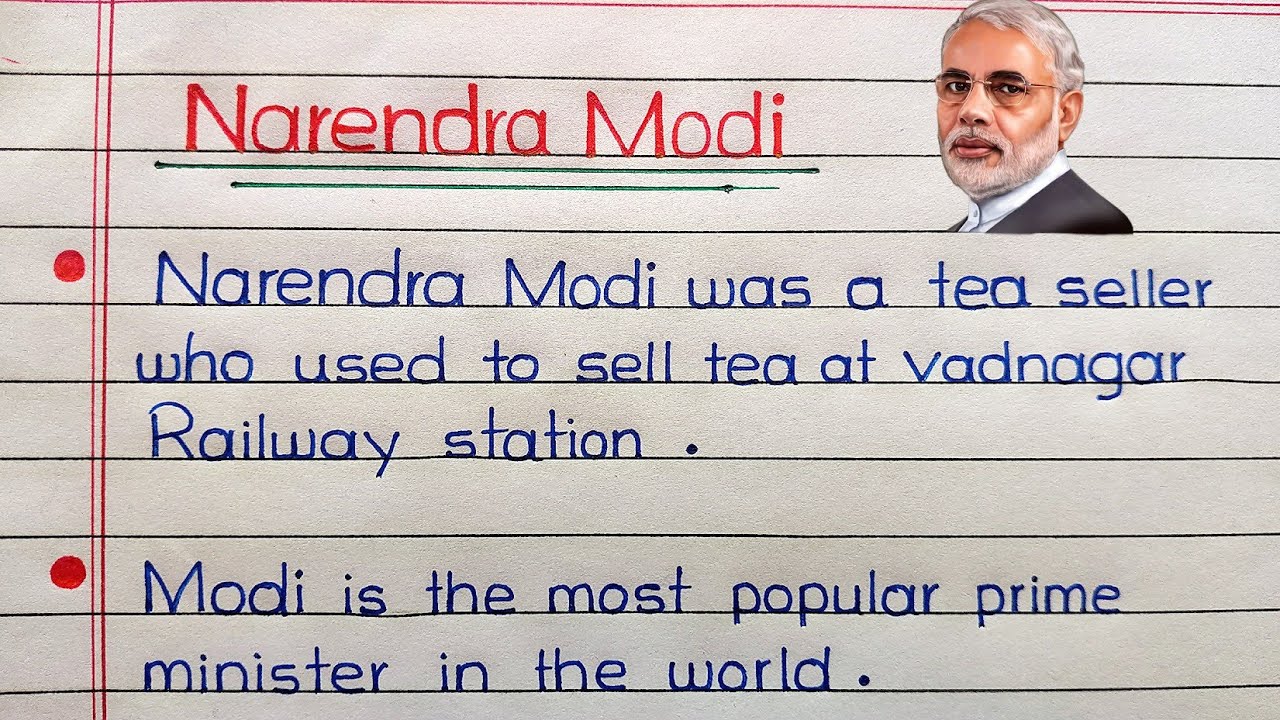 Narendra Modi
Narendra Modi was a tea seller
who used to sell tea at vadnagar
Railway station .
Modi is the most popular prime
minister in the world .